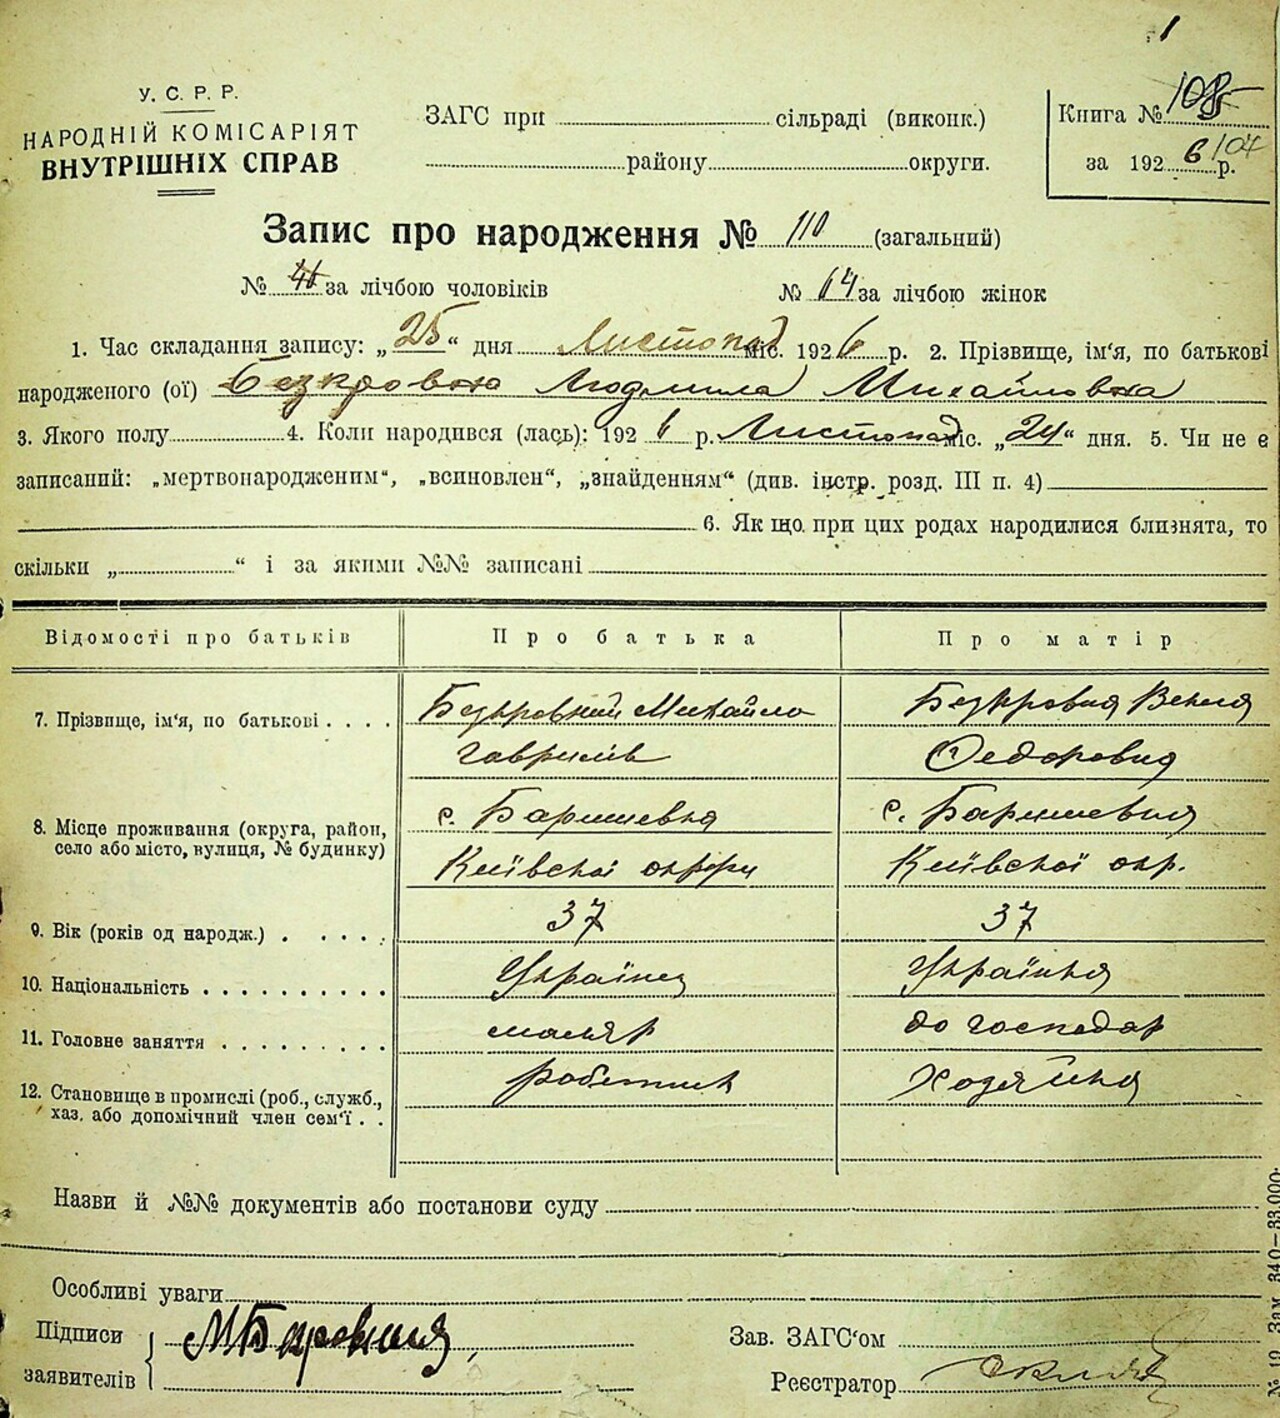 1
У. С. Р. Р.
НАРОДНІЙ КОМІСАРІЯТ
ВНУТРІШНІХ СПРАВ
ЗАГС при сільраді (виконк.)
району округи.
Книга №
за 1926 р. 104
Запис про народження № 110 (загальний)
№ 46 за лічбою чоловіків № 64 за лічбою жінок
1. Час складання запису: „25“ дня Листопад міс. 1926 р. 2. Прізвище, ім'я, по батькові
народженого (ої) Безкровною Людмила Михайловна
3. Якого полу 4. Коли народився (лась): 1926 р. Листопад міс. „24“ дня. 5. Чи не є
записаний: „мертвонародженим“, „всиновлен“, „знайденням“ (див. інстр. розд. III п. 4)
6. Як що при цих родах народилися близнята, то
скільки „ “ і за якими №№ записані
Відомості про батьків Про батька Про матір
7. Прізвище, ім'я, по батькові . . . . Безкровний Михайло Безкровна
Гаврилів Федоровна
8. Місце проживання (округа, район, село або місто, вулиця, № будинку) с. Баришевка с. Баришевка
Київської округи Київської окр.
9. Вік (років од народж.) . . . . . 37 37
10. Національність . . . . . . . . . . Українец Українка
11. Головне заняття . . . . . . . . . маляр до господар
12. Становище в промислі (роб., служб., хаз. або допомічний член сем'ї . . робітник Хозяйка
Назви й №№ документів або постанови суду
Особливі уваги
Підписи
заявителів
Зав. ЗАГС'ом
Реєстратор
№ 19 Зам. 340—33.000.